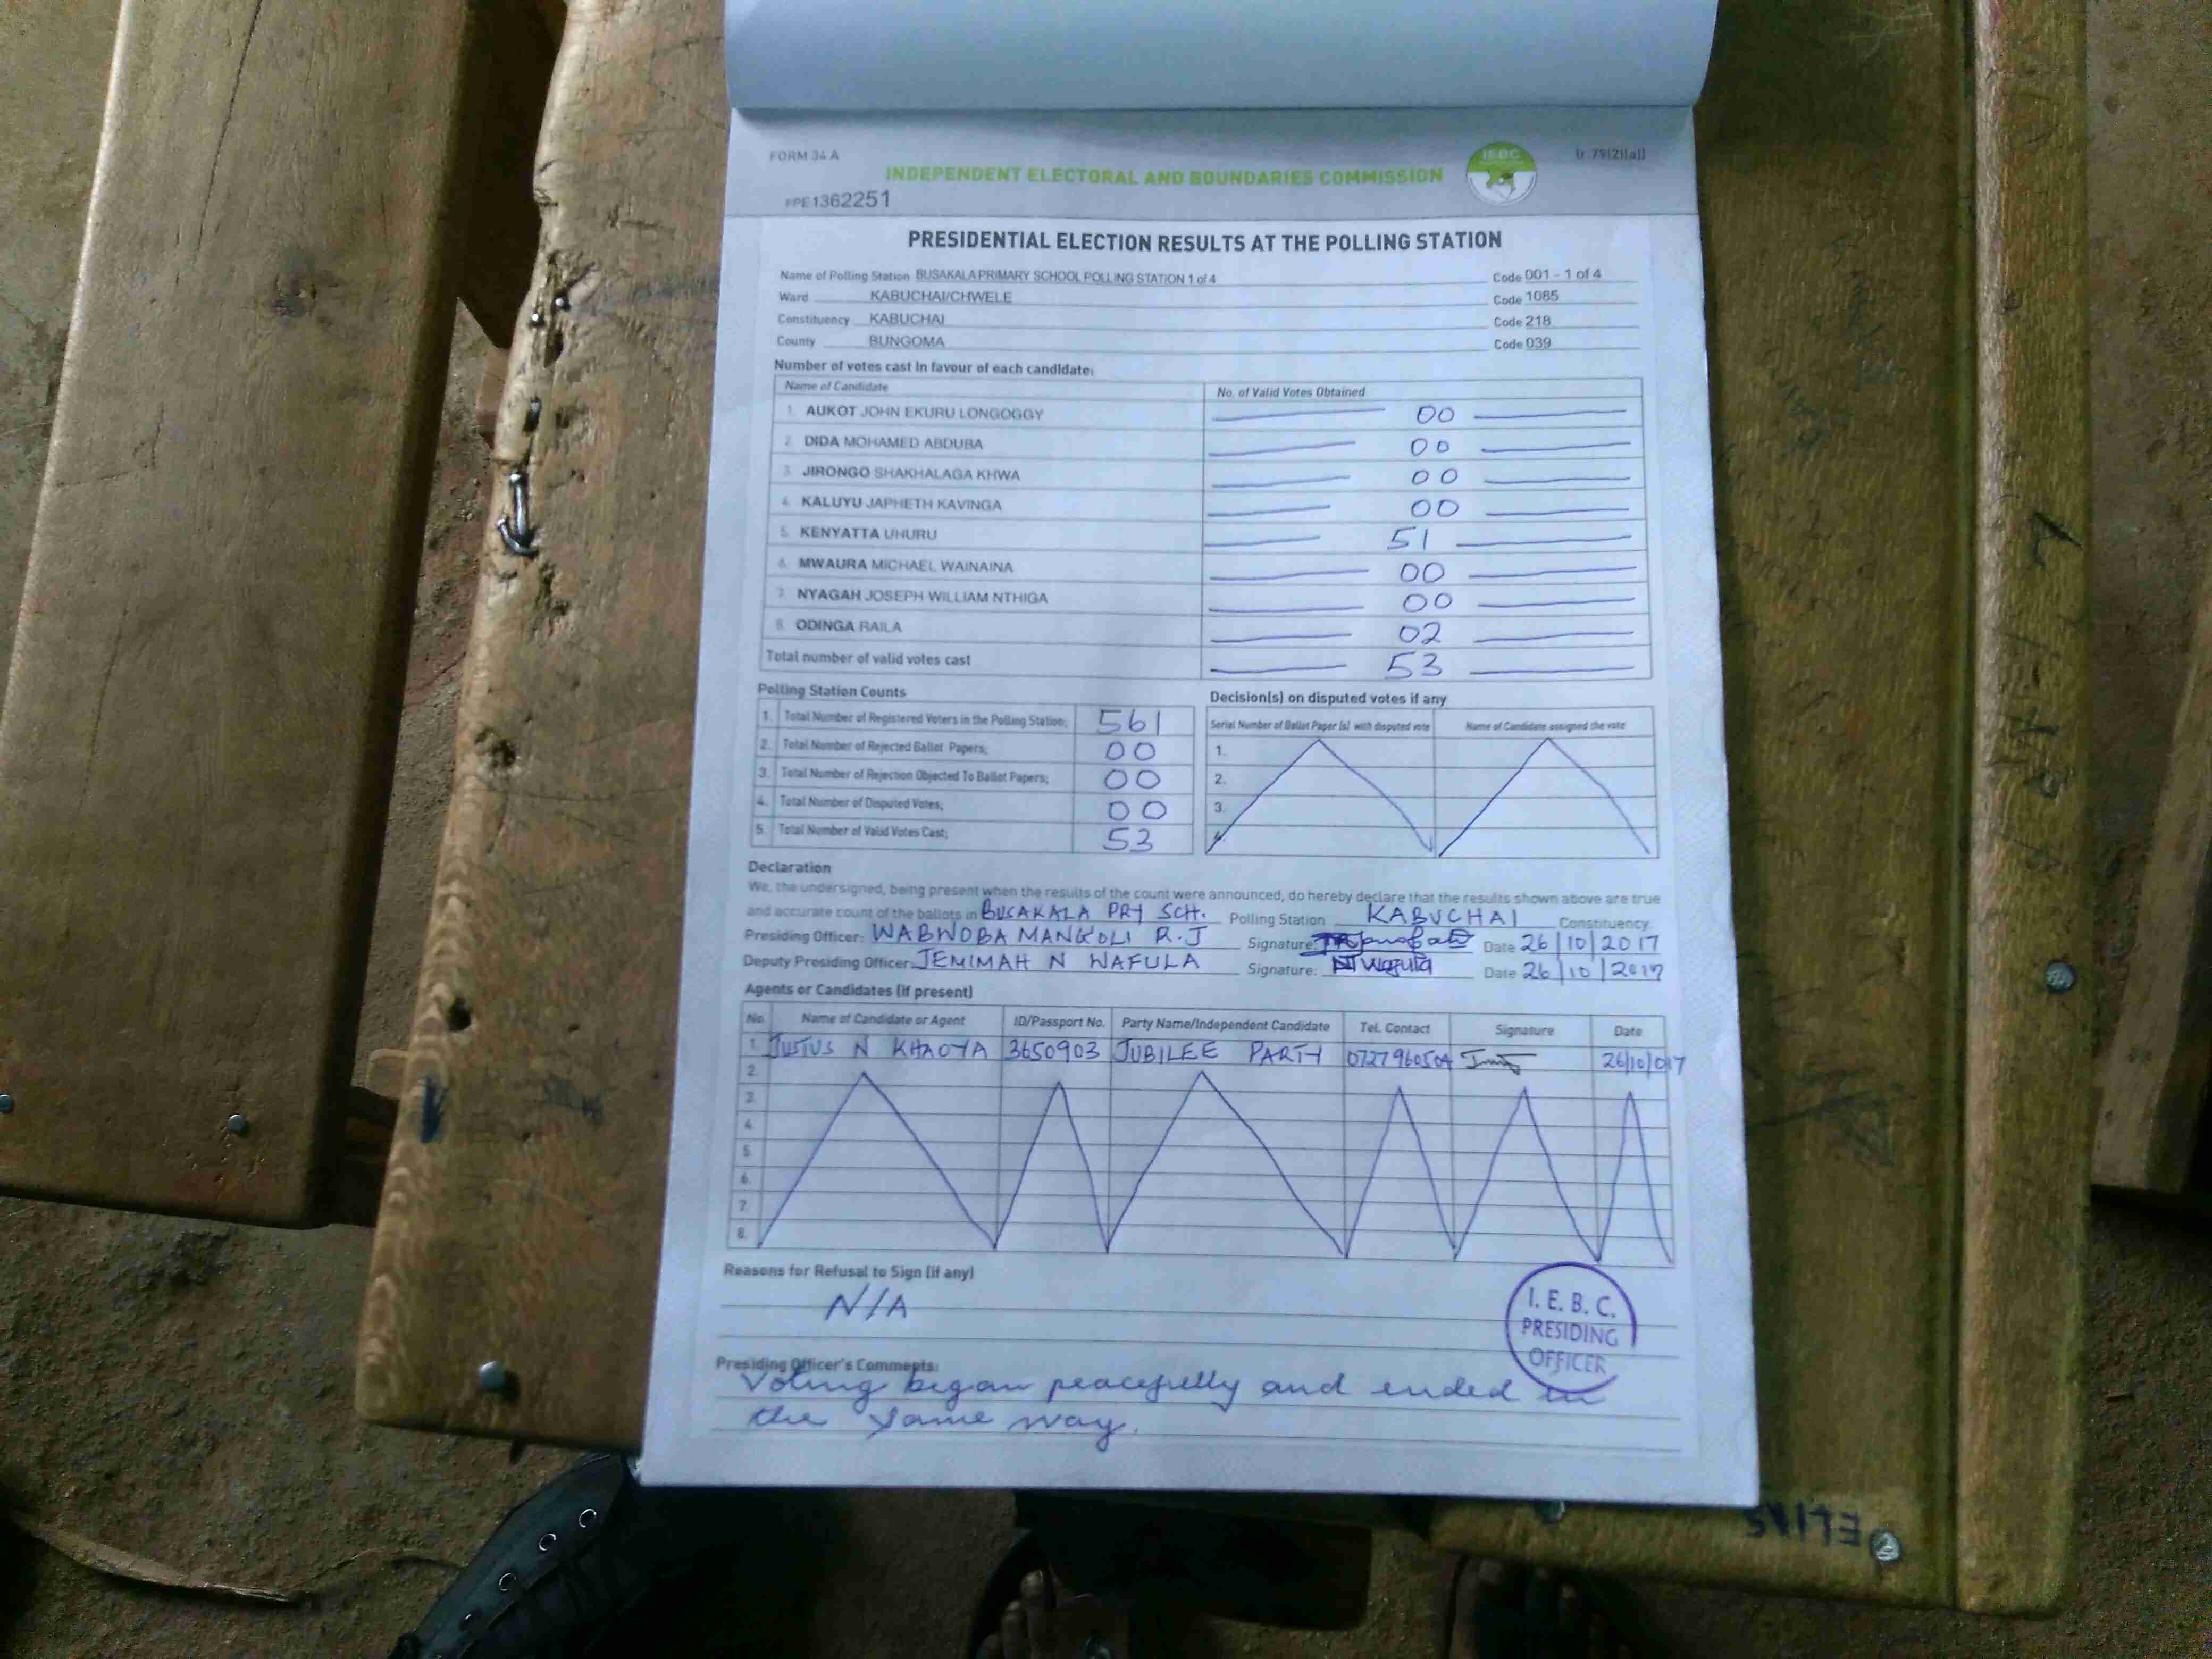 FORM 34 A
(r.79(2)(a))
IEBC
INDEPENDENT ELECTORAL AND BOUNDARIES COMMISSION
FPE1362251
PRESIDENTIAL ELECTION RESULTS AT THE POLLING STATION
Name of Polling Station BUSAKALA PRIMARY SCHOOL POLLING STATION 1 of 4 Code 001 - 1 of 4
Ward KABUCHAI/CHWELE Code 1085
Constituency KABUCHAI Code 218
County BUNGOMA Code 039
Number of votes cast in favour of each candidate:
Name of Candidate No. of Valid Votes Obtained
1. AUKOT JOHN EKURU LONGOGGY 00
2. DIDA MOHAMED ABDUBA 00
3. JIRONGO SHAKHALAGA KHWA 00
4. KALUYU JAPHETH KAVINGA 00
5. KENYATTA UHURU 51
6. MWAURA MICHAEL WAINAINA 00
7. NYAGAH JOSEPH WILLIAM NTHIGA 00
8. ODINGA RAILA 02
Total number of valid votes cast 53
Polling Station Counts
1. Total Number of Registered Voters in the Polling Station; 561
2. Total Number of Rejected Ballot Papers; 00
3. Total Number of Rejection Objected To Ballot Papers; 00
4. Total Number of Disputed Votes; 00
5. Total Number of Valid Votes Cast; 53
Decision(s) on disputed votes if any
Serial Number of Ballot Paper (s) with disputed vote Name of Candidate assigned the vote
1.
2.
3.
4.
Declaration
We, the undersigned, being present when the results of the count were announced, do hereby declare that the results shown above are true
and accurate count of the ballots in BUSAKALA PRY SCH. Polling Station KABUCHAI Constituency
Presiding Officer: WABWOBA MANG'OLI R.J Signature: Date 26/10/2017
Deputy Presiding Officer: JEMIMAH N WAFULA Signature: Wafula Date 26/10/2017
Agents or Candidates (if present)
No. Name of Candidate or Agent ID/Passport No. Party Name/Independent Candidate Tel. Contact Signature Date
1. JUSTUS N KHAOYA 3650903 JUBILEE PARTY 0727960504 26/10/017
2.
3.
4.
5.
6.
7.
8.
Reasons for Refusal to Sign (if any)
N/A
I. E. B. C.
PRESIDING
OFFICER
Presiding Officer's Comments:
Voting began peacefully and ended in
the same way.
ELIAS